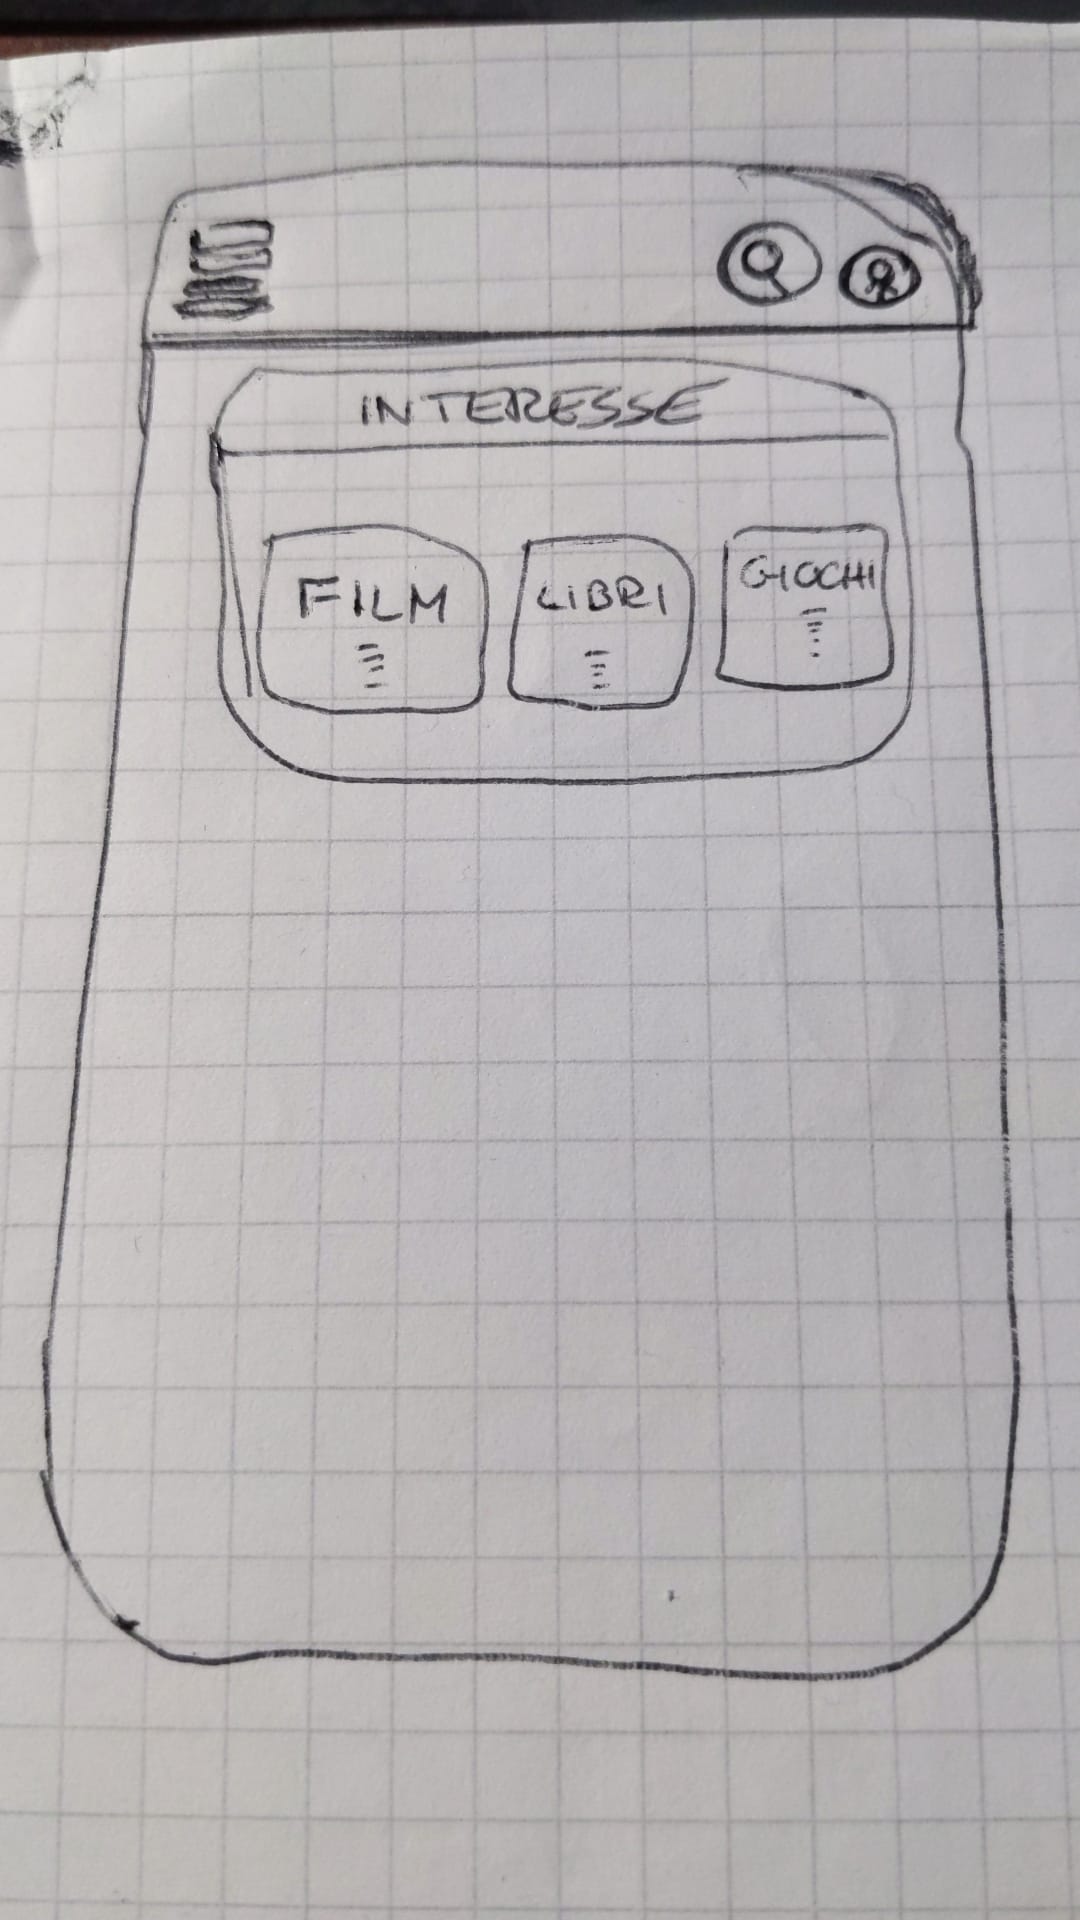 INTERESSE
FILM
LIBRI
GIOCHI